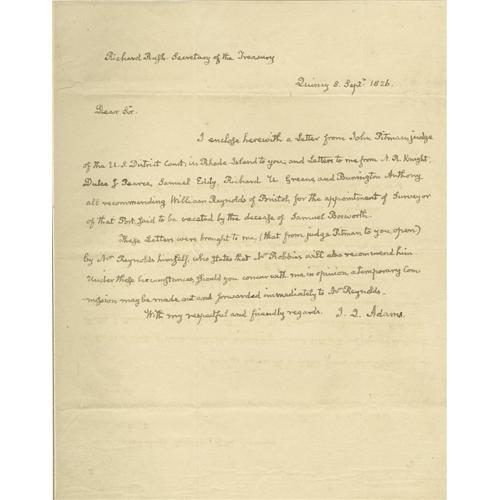 Richard Rush. Secretary of the Treasury
Quincy 8. Septr 1826.
Dear Sir.
I enclose herewith a Letter from John Pitman, judge
of the U.S. District Court, in Rhode Island to you, and Letters to me from N. R. Knight,
Dutee J. Pearce, Samuel Eddy, Richard W. Greene, and Burrington Anthony
all recommending William Reynolds of Bristol, for the appointment of Surveyor
of that Port, said to be vacated by the decease of Samuel Bosworth.
These Letters were brought to me, (that from judge Pitman to you, open)
by Mr Reynolds himself, who states that Mr Robbins will also recommend him.
Under these circumstances, should you concur with me in opinion, a temporary Com
mission may be made out and forwarded immediately to Mr Reynolds.
With my respectful and friendly regards. J. Q. Adams.